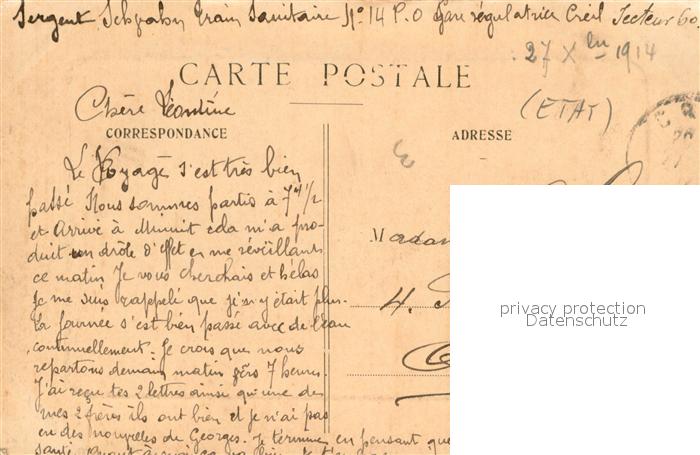 Sergent Train Sanitaire No 14 P.O Gare régulatrice Creil Secteur 60
27 Xbre 1914
CARTE POSTALE
(ETAT)
Chère Léontine
CORRESPONDANCE
ADRESSE
Le Voyage s'est très bien
passé Nous sommes partis à 7h 1/2
et Arrivé à Minuit cela m'a pro-
duit un drôle d'effet en me réveillant
ce matin Je vous cherchais et hélas
Je me suis rappelé que j'en y était plus.
La journée s'est bien passé avec de l'eau
continuellement. Je crois que nous
repartons demain matin vers 7 heures.
J'ai reçu tes 2 lettres ainsi qu'une de
mes 2 frères ils ont bien et je n'ai pas
eu des nouvelles de Georges. Je termine en pensant que
santé
Madam
4.
privacy protection
Datenschutz